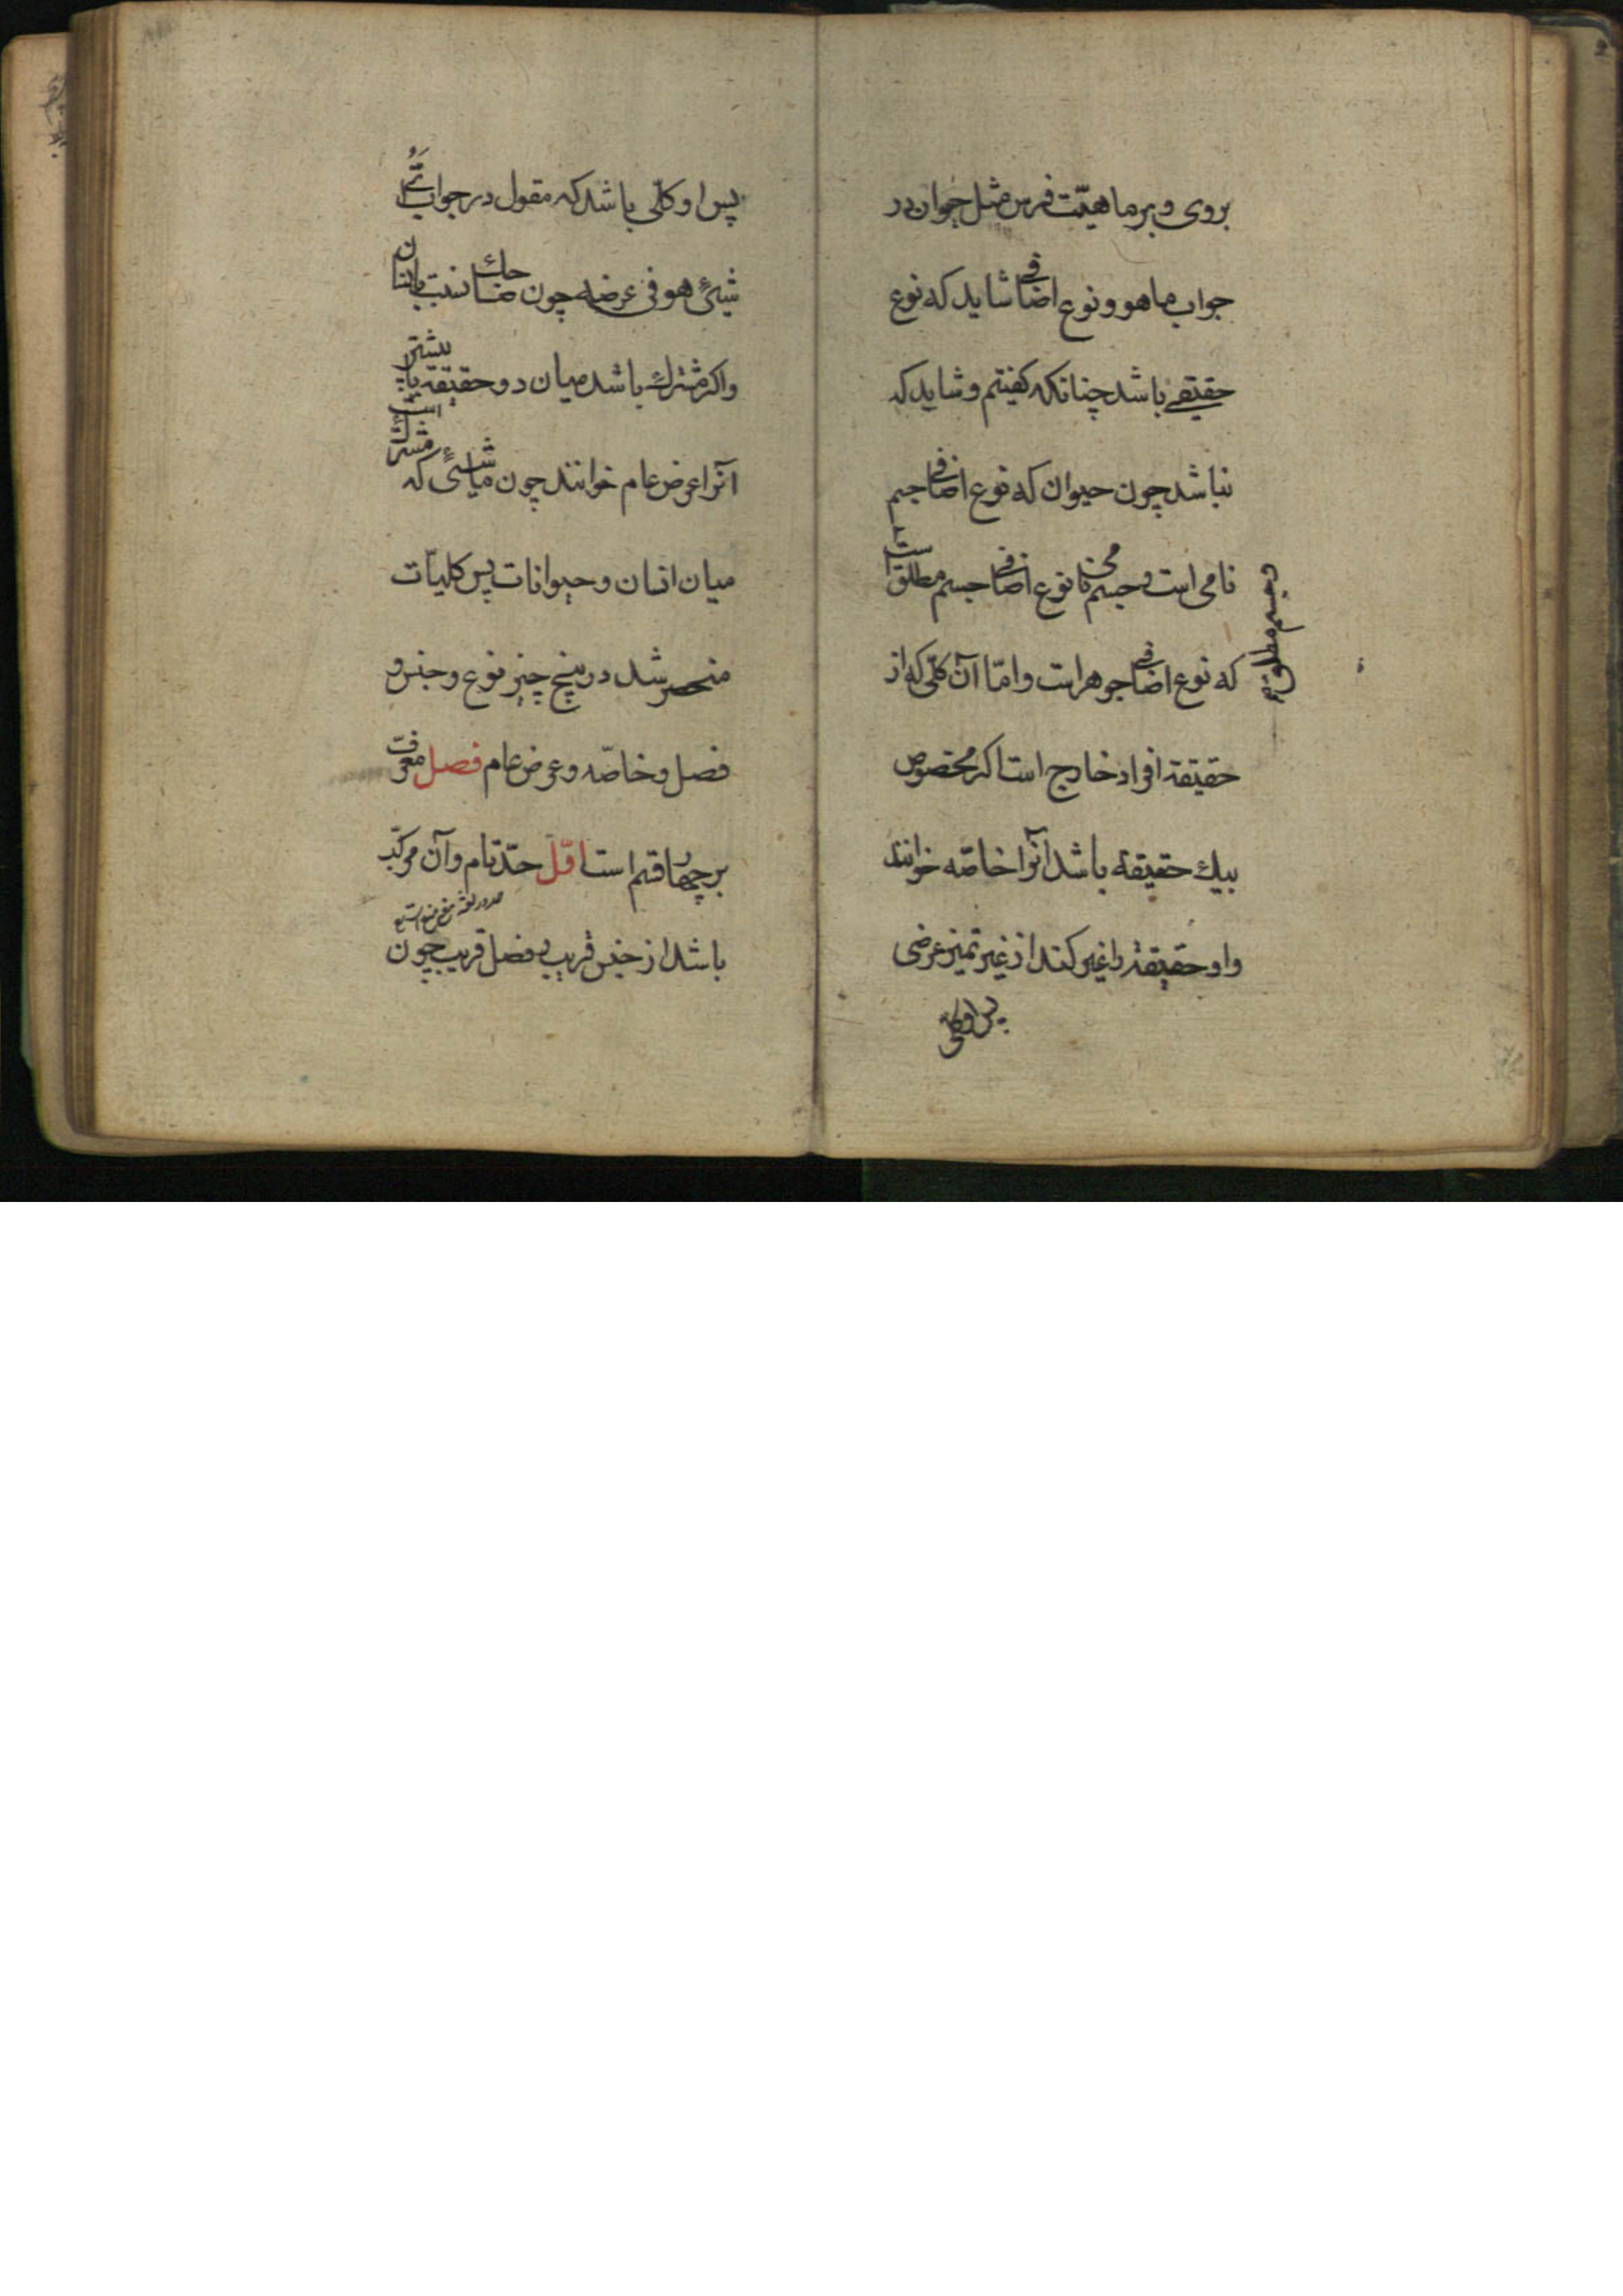 بروی و بر ماهیّت فرس مثل حیوان در
جواب ما هو و نوع اضافی شاید که نوع
حقیقے باشد چنانکه کفیتم و شاید که
نباشد چون حیوان که نوع اضافی جسم
نامی است و جسم نامی نوع اضافی جسم مطلق است
و جسم مطلق
که نوع اضافی جوهر است و امّا آن کلّی که از
حقیقة افراد خارج است اکر مخصوص
بیك حقیقة باشد آنرا خاصّه خوانند
و او حقیقة را غیر کند از غیر تمیز عرضی
پس او کلی
پس او کلّی باشد که مقول در جواب
شیئٍ هو فی عرضه چون ضاحك نسبت بانسان
و اکر مشترك باشد میان دو حقیقة یا بیشتر
آنرا عرض عام خوانند چون ماشئ که مشترك است
میان انسان و حیوانات پس کلیّات
منحصر شد در پنج چیز نوع و جنس و
فصل و خاصّه و عرض عام فصل معرّف
بر چهار قسم است اوّل حدّ تام و آن مرکّب
باشد از جنس قریب و فصل قریب چون